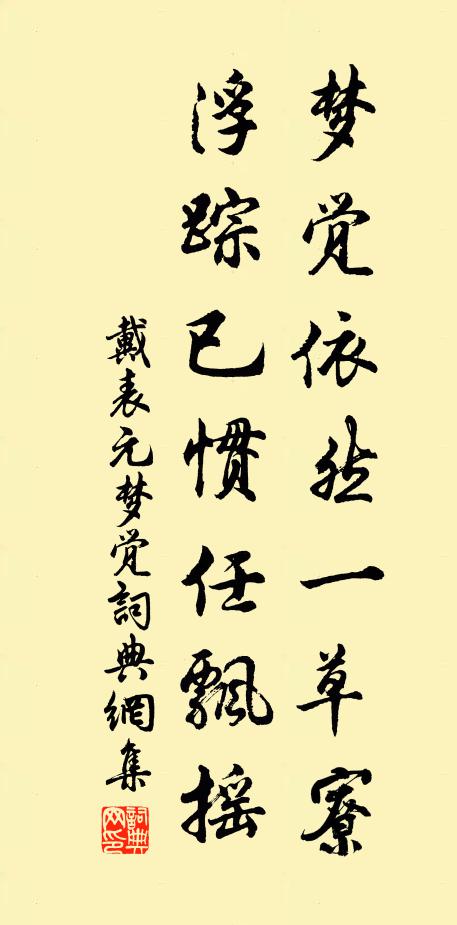 梦觉依然一草寮
浮踪已惯任飘摇
戴表元梦觉詞典網集
詞典网印